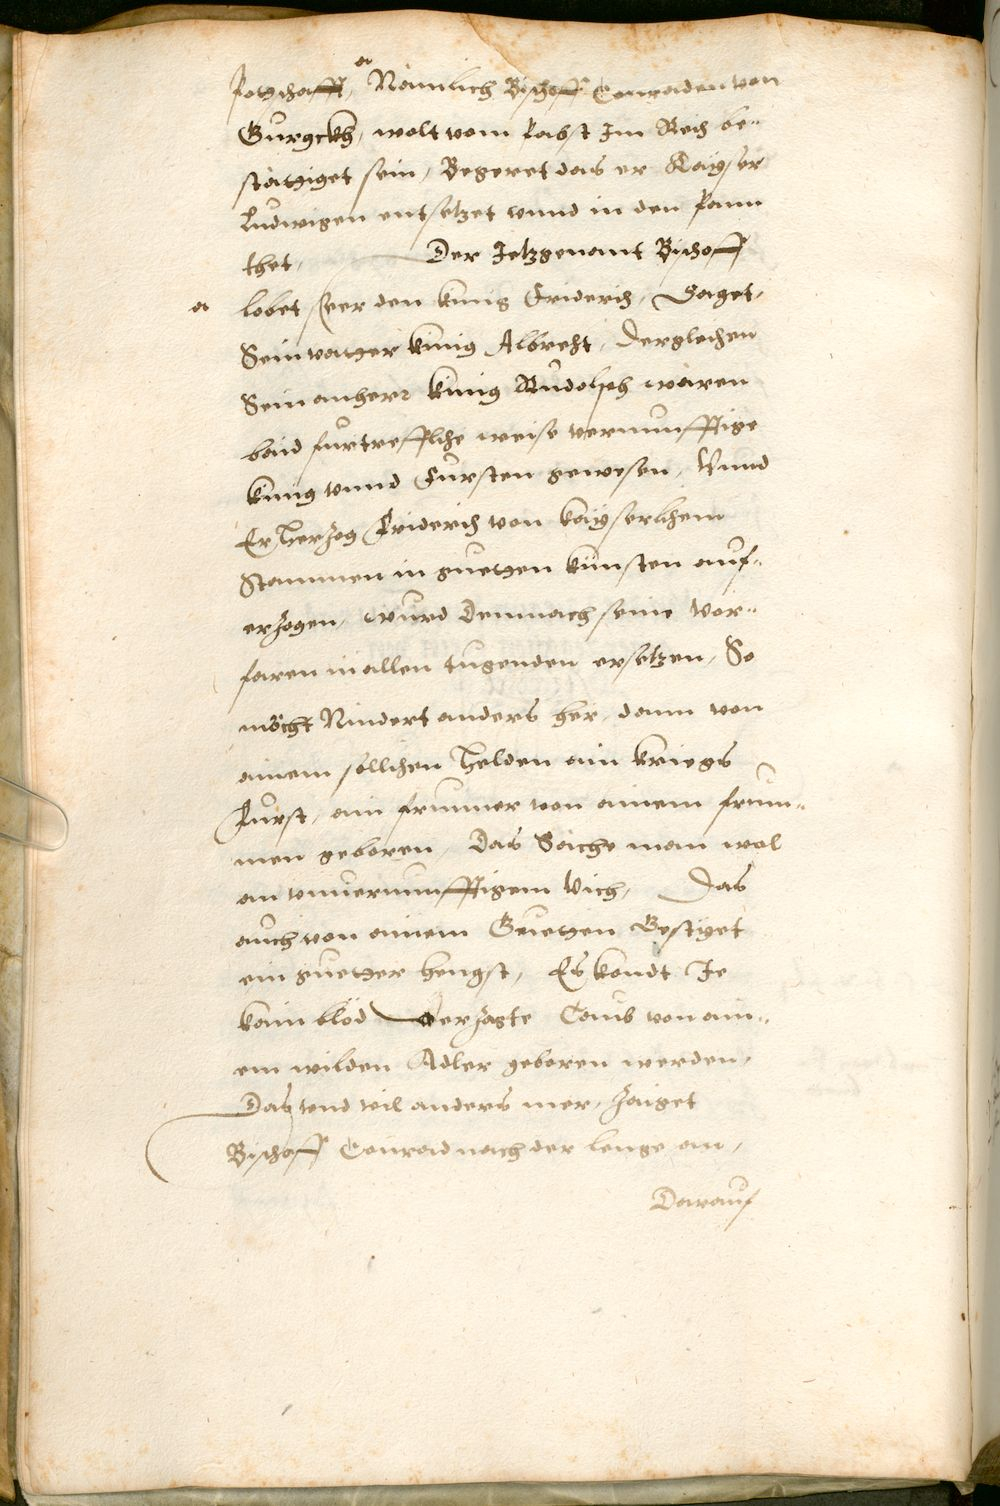 a
potschafft, Nämlich Bischoff Conraden von
Gurgckh, wolt vom Pabst Im Reich be-
stätiget sein, Begeret das er Kayser
Ludwigen entsetzet vnnd in den Pann
thet, Der Jetzgenant Bischoff
a lobet seer den künig Friderich, Saget,
Sein vatter künig Albrecht, dergleichen
Sein anherr künig Rudolph wären
baid fürtreffliche weise vernunfftige
künig vnnd Fürsten gewesen, Vnnd
Er Hertzog Friderich von kayserlichem
Stammen in guetten künsten auf-
erzogen, wurd demnach seine Vor-
faren in allen tugenden ersetzen, So
möcht Nindert anders her, dann von
ainem sollichen Helden ain kriegs
Fürst, ain frummer von ainem frum-
men geboren, Das Säche man wol
an vnuernunfftigem Vich, Das
auch von ainem Guetten Gestüet
ein guetter hengst, Es kondt Je
kain blöd verzagte Taub von ain-
em wilden Adler geboren werden,
Das vnd vil anders mer, zaiget
Bischoff Conrad nach der lenge an,
Darauf